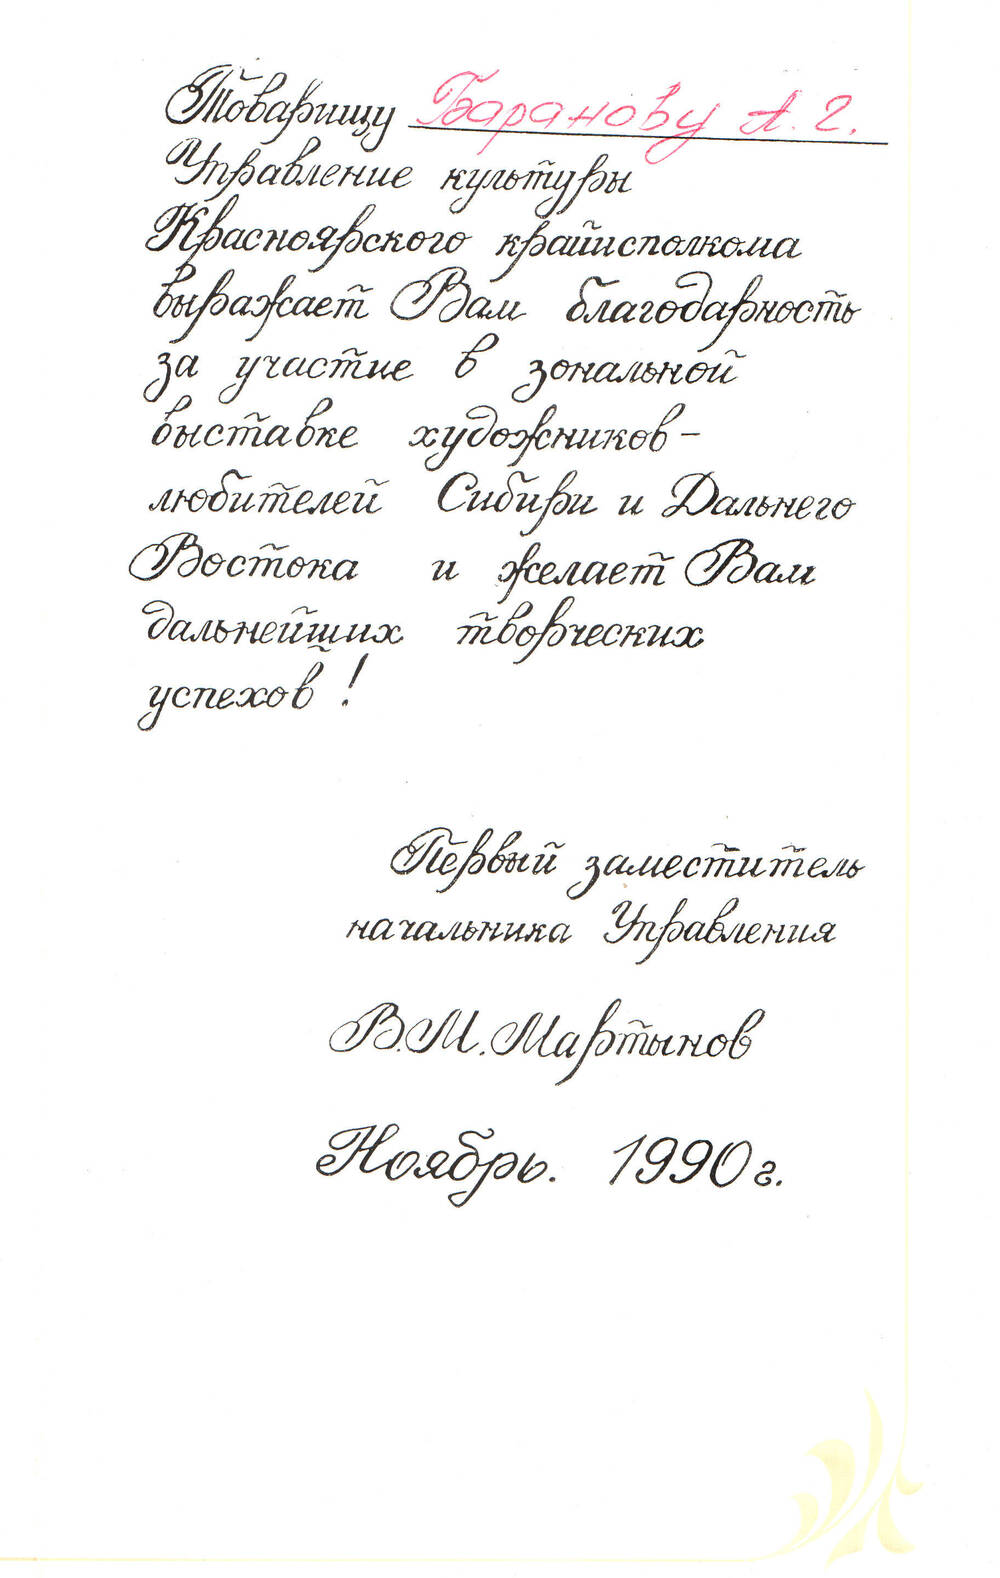 Товарищу Баранову А. Г.
Управление культуры
Красноярского крайисполкома
выражает Вам благодарность
за участие в зональной
выставке художников-
любителей Сибири и Дальнего
Востока и желает Вам
дальнейших творческих
успехов!
Первый заместитель
начальника Управления
В.М. Мартынов
Ноябрь. 1990 г.